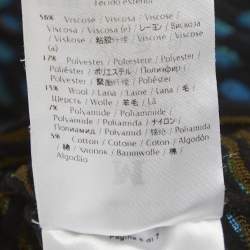 Tecido exterior
56% Viscose / Viscose / Viscose /
Viscose / Viscosa (e) / レーヨン / Вискоза
/ Viskose / 粘胶纤维 / Viscose / Viscose
(a)
17% Polyester / Polyestere / Polyester /
Poliéster / ポリエステル / Полиэфир /
Polyester / 聚酯纤维 / Polyester /
Poliéster
15% Wool / Lana / Laine / Lana / 毛 /
Шерсть / Wolle / 羊毛 / Lã
7% Polyamide / Poliammide /
Polyamide / Poliamida / ナイロン /
Полиамид / Polyamid / 锦纶 / Poliamida
5% Cotton / Cotone / Coton / Algodón
/ 綿 / Хлопок / Baumwolle / 棉 /
Algodão
Pagina 5 di 7